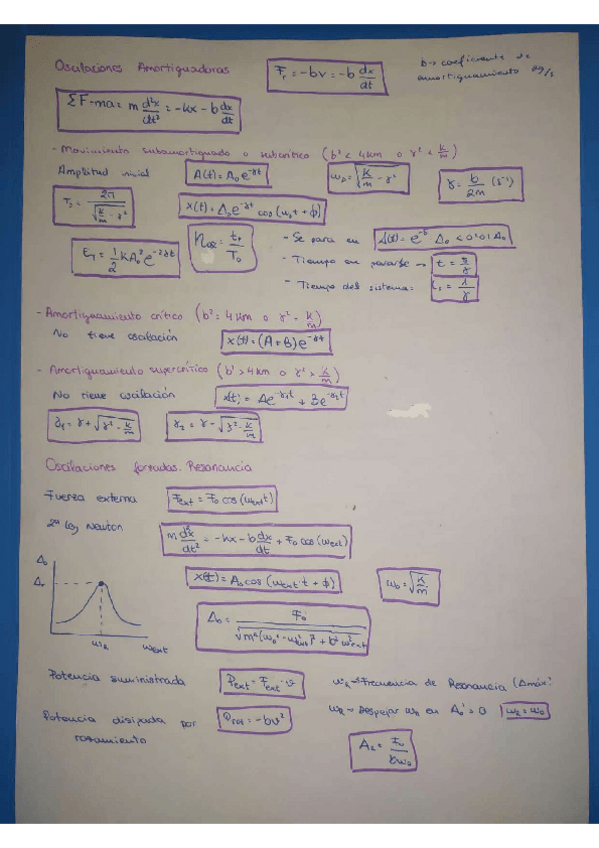 Oscilaciones Amortiguadoras
Fr = -bv = -b dx/dt
b → coeficiente de
amortiguamiento kg/s
ΣF = ma = m d²x/dt² = -kx - b dx/dt
- Movimiento subamortiguado o subcrítico (b² < 4km o γ² < k/m)
Amplitud inicial
A(t) = A₀e^-γt
ω₀ = √(k/m - γ²)
γ = b/2m (s⁻¹)
T₀ = 2π/√(k/m - γ²)
x(t) = A₀e^-γt cos(ω₀t + ϕ)
E_T = 1/2 kA₀² e^-2γt
Nose = tp/T₀
- Se para en A(t) = e^-5 A₀ < 0'01 A₀
- Tiempo en pararse → t = 5/γ
- Tiempo del sistema: = 1/γ
- Amortiguamiento crítico (b² = 4km o γ² = k/m)
No tiene oscilación
x(t) = (A+B)e^-γt
- Amortiguamiento supercrítico (b² > 4km o γ² > k/m)
No tiene oscilación
x(t) = Ae^-γ₁t + Be^-γ₂t
γ₁ = γ + √(γ² - k/m)
γ₂ = γ - √(γ² - k/m)
Oscilaciones forzadas. Resonancia
Fuerza externa
Fext = F₀ cos(ωext t)
2ª ley Newton
m d²x/dt² = -kx - b dx/dt + F₀ cos(ωext)
x(t) = A₀ cos(ωext · t + ϕ)
ω₀ = √(k/m)
A₀
Ar
ωR
ωext
A₀ = F₀/√(m²(ω₀² - ωext²)² + b²ω²ext)
Potencia suministrada
Pext = Fext · v
ωR → Frecuencia de Resonancia (Amáx)
Potencia disipada por
rozamiento
Proz = -bv²
ωR → Despejar ωR en A₀' = 0
ωR = ω₀
AR = F₀/bω₀